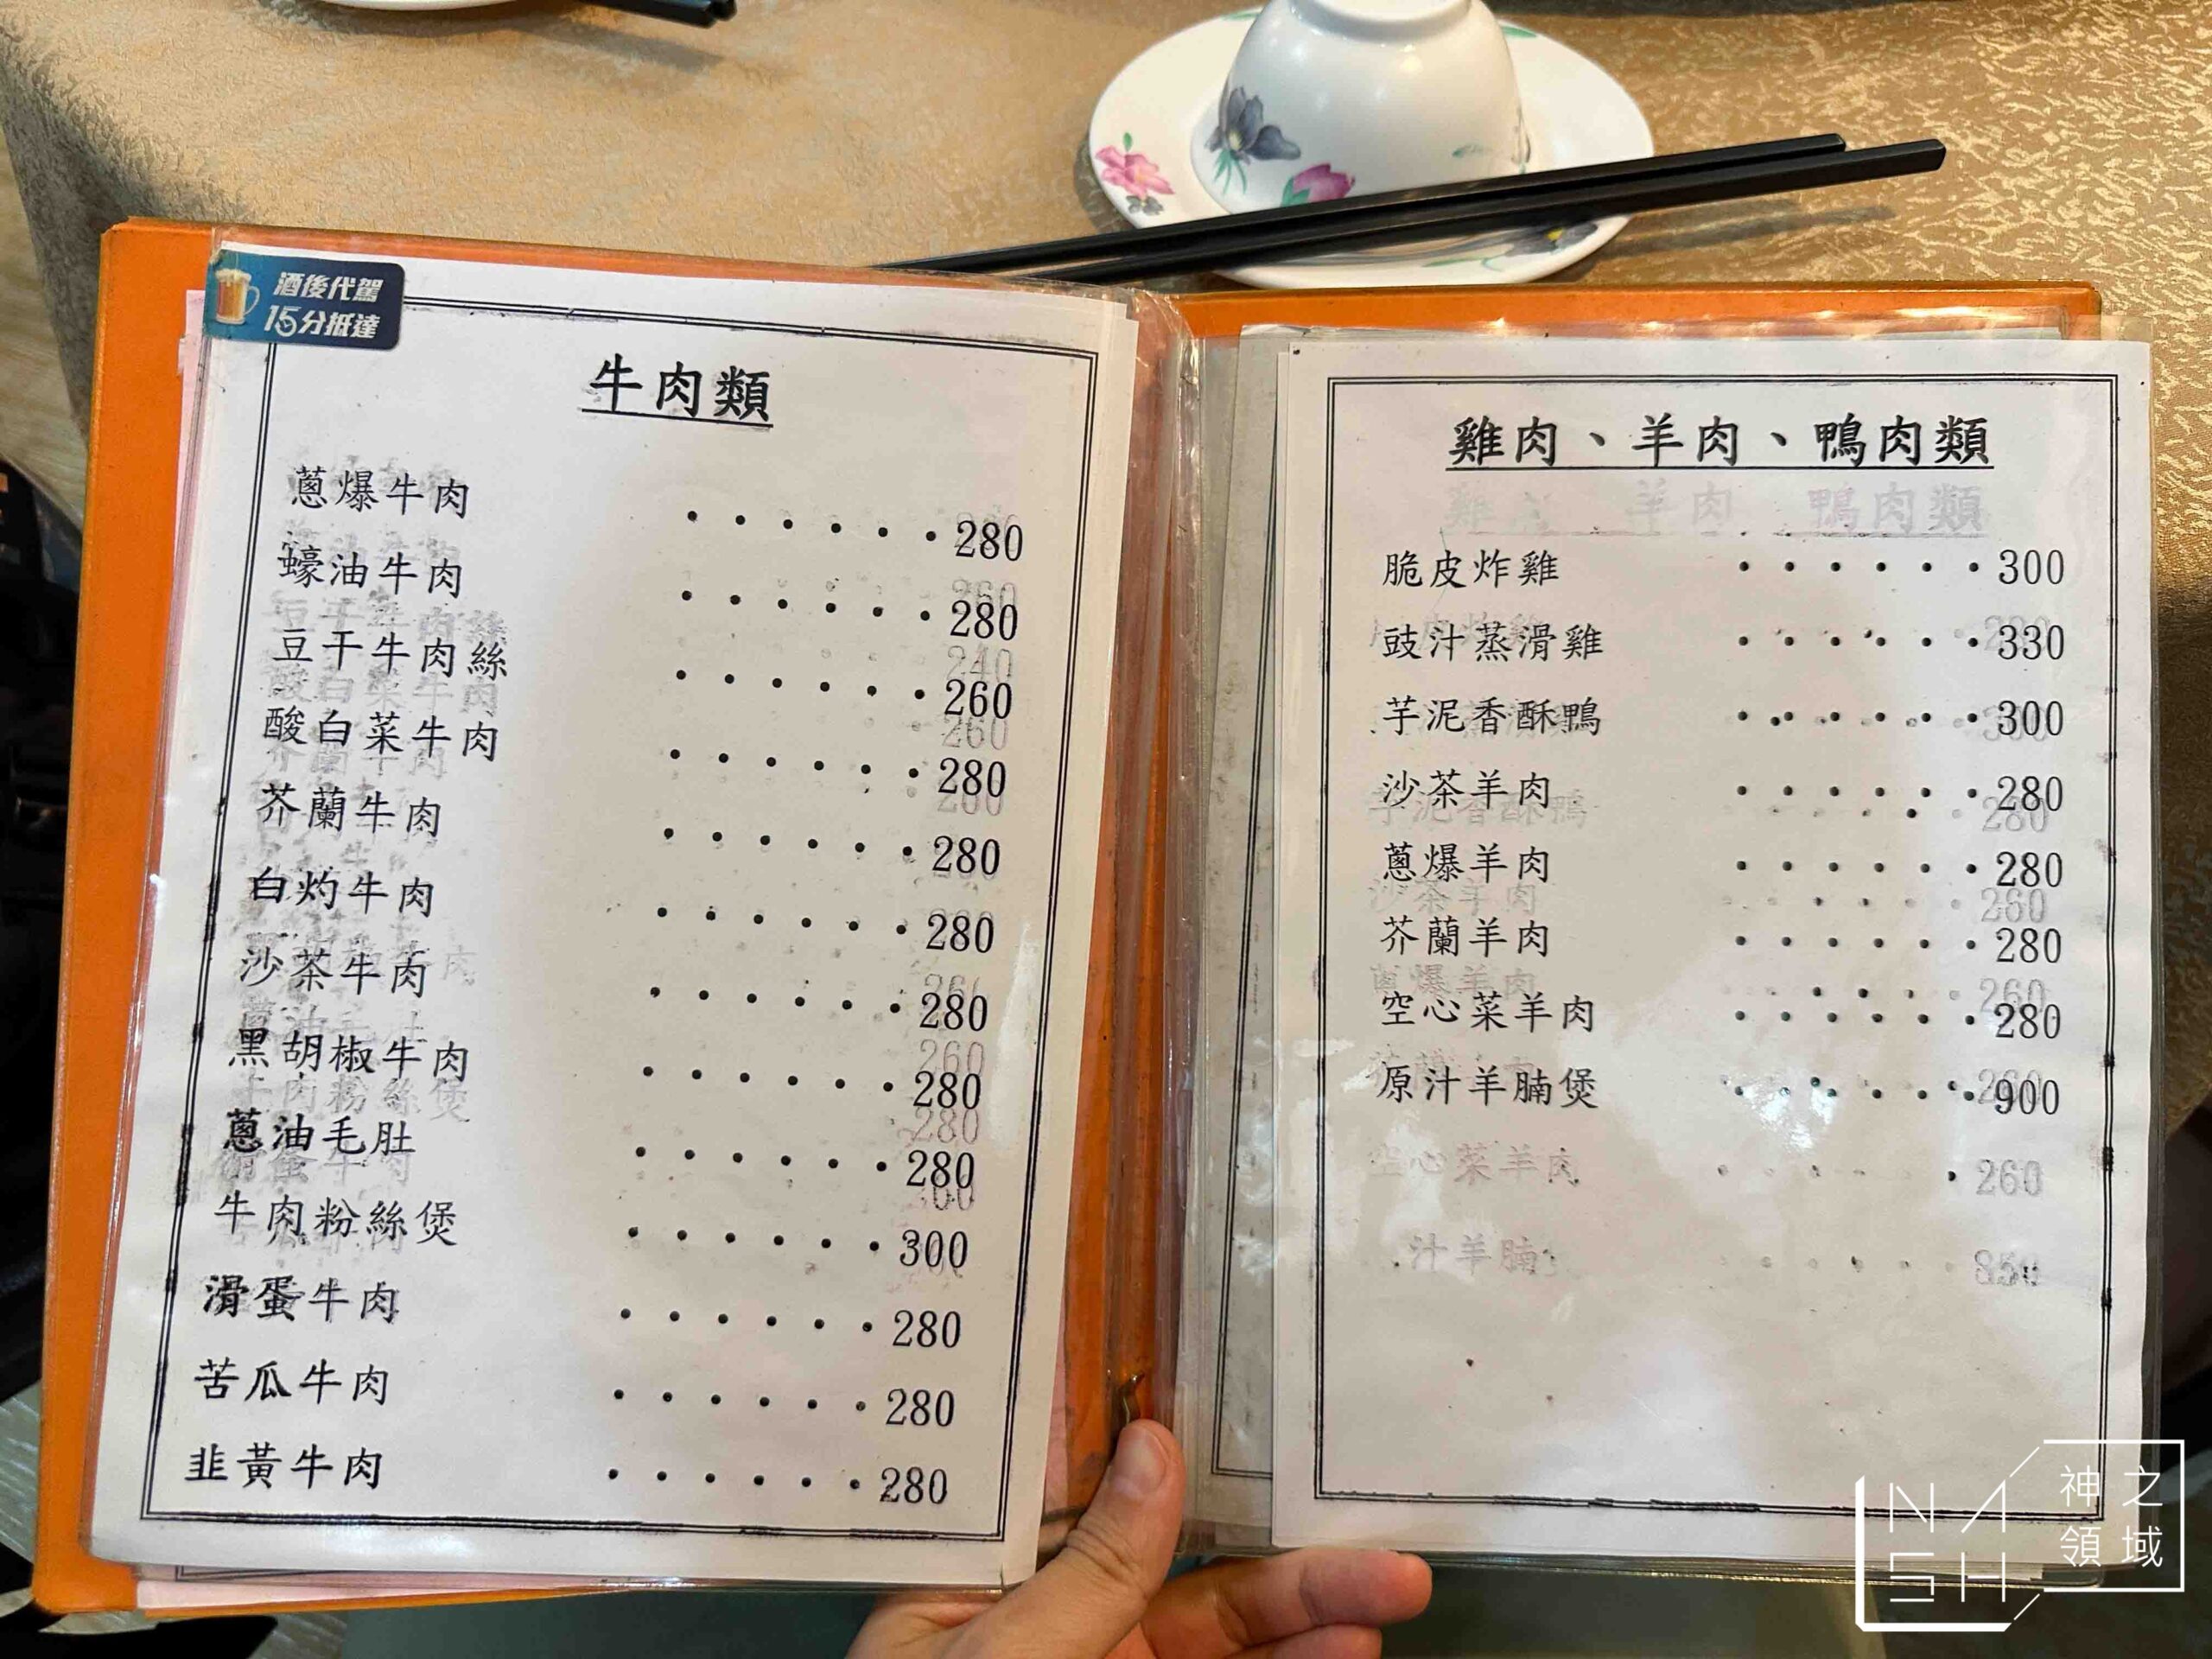 酒後代駕
15分抵達
牛肉類
蔥爆牛肉 ・・・・・・280
蠔油牛肉 ・・・・・・280
豆干牛肉絲 ・・・・・・260
酸白菜牛肉 ・・・・・・280
芥蘭牛肉 ・・・・・・280
白灼牛肉 ・・・・・・280
沙茶牛肉 ・・・・・・280
黑胡椒牛肉 ・・・・・・280
蔥油毛肚 ・・・・・・280
牛肉粉絲煲 ・・・・・・300
滑蛋牛肉 ・・・・・・280
苦瓜牛肉 ・・・・・・280
韭黃牛肉 ・・・・・・280
雞肉、羊肉、鴨肉類
脆皮炸雞 ・・・・・・300
豉汁蒸滑雞 ・・・・・・330
芋泥香酥鴨 ・・・・・・300
沙茶羊肉 ・・・・・・280
蔥爆羊肉 ・・・・・・280
芥蘭羊肉 ・・・・・・280
空心菜羊肉 ・・・・・・280
原汁羊腩煲 ・・・・・・900
空心菜羊肉 260
汁羊腩
NASH
神之
領域